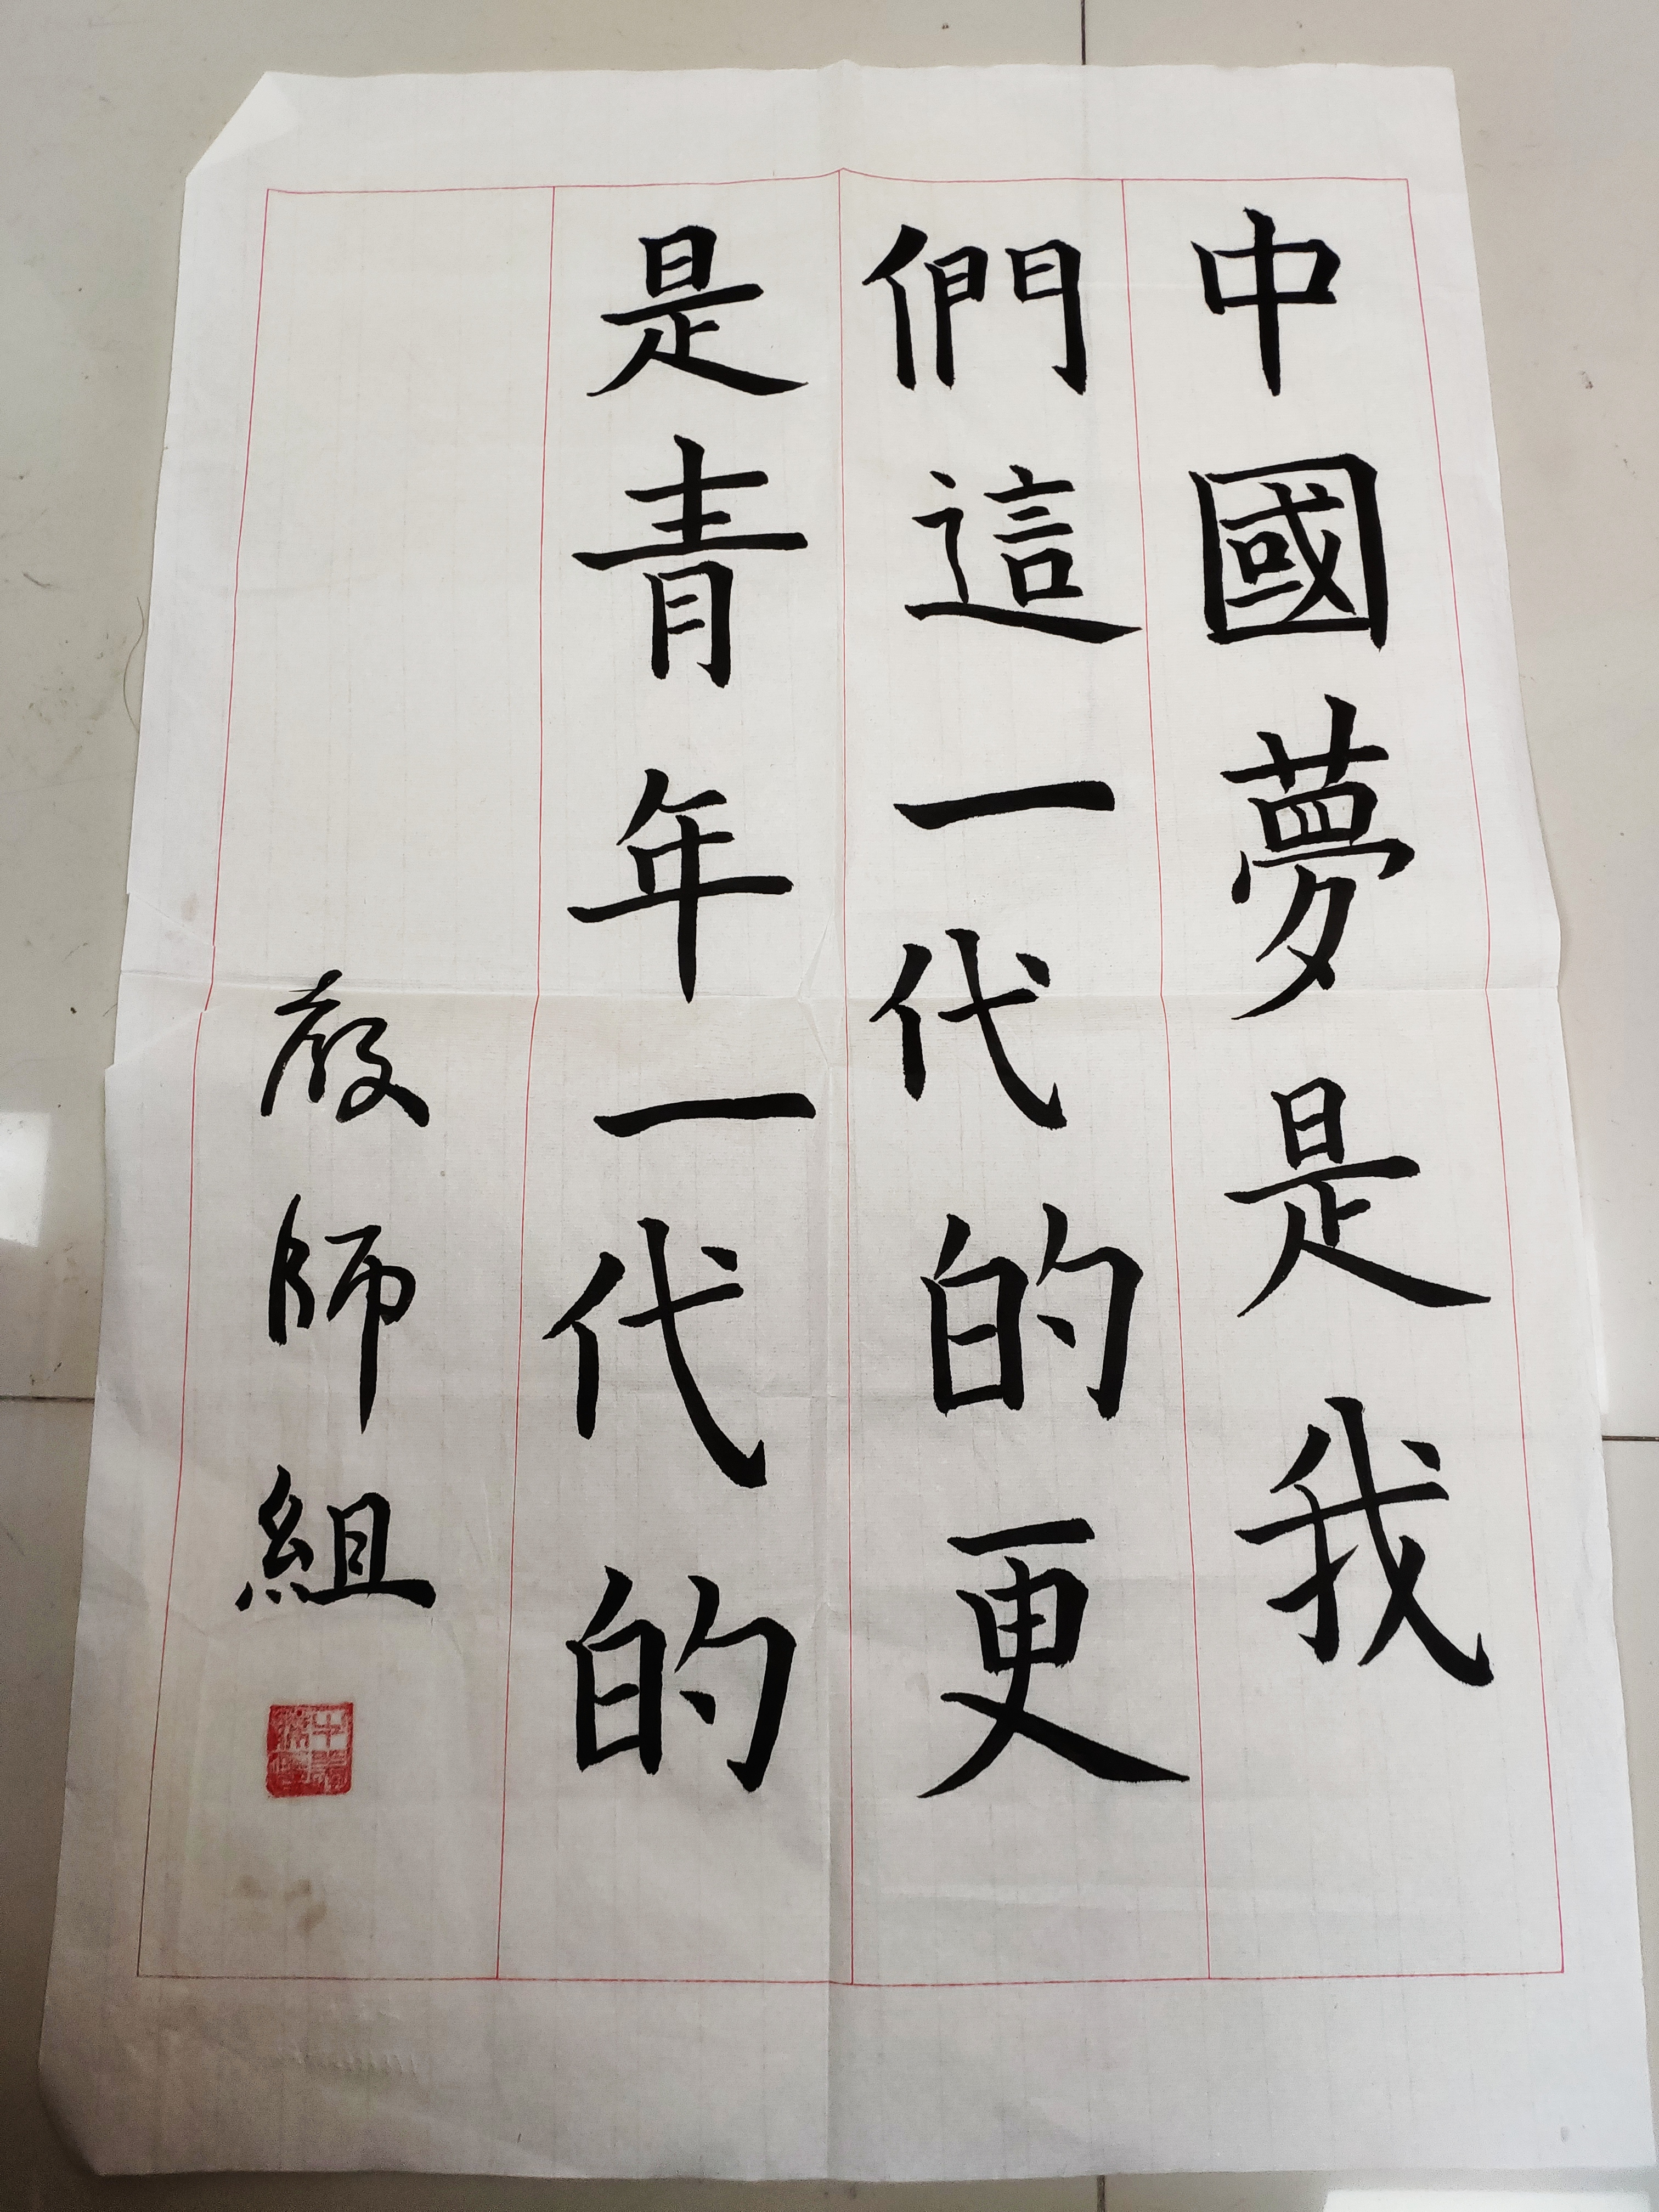 中國夢是我
們這一代的更
是青年一代的
師組